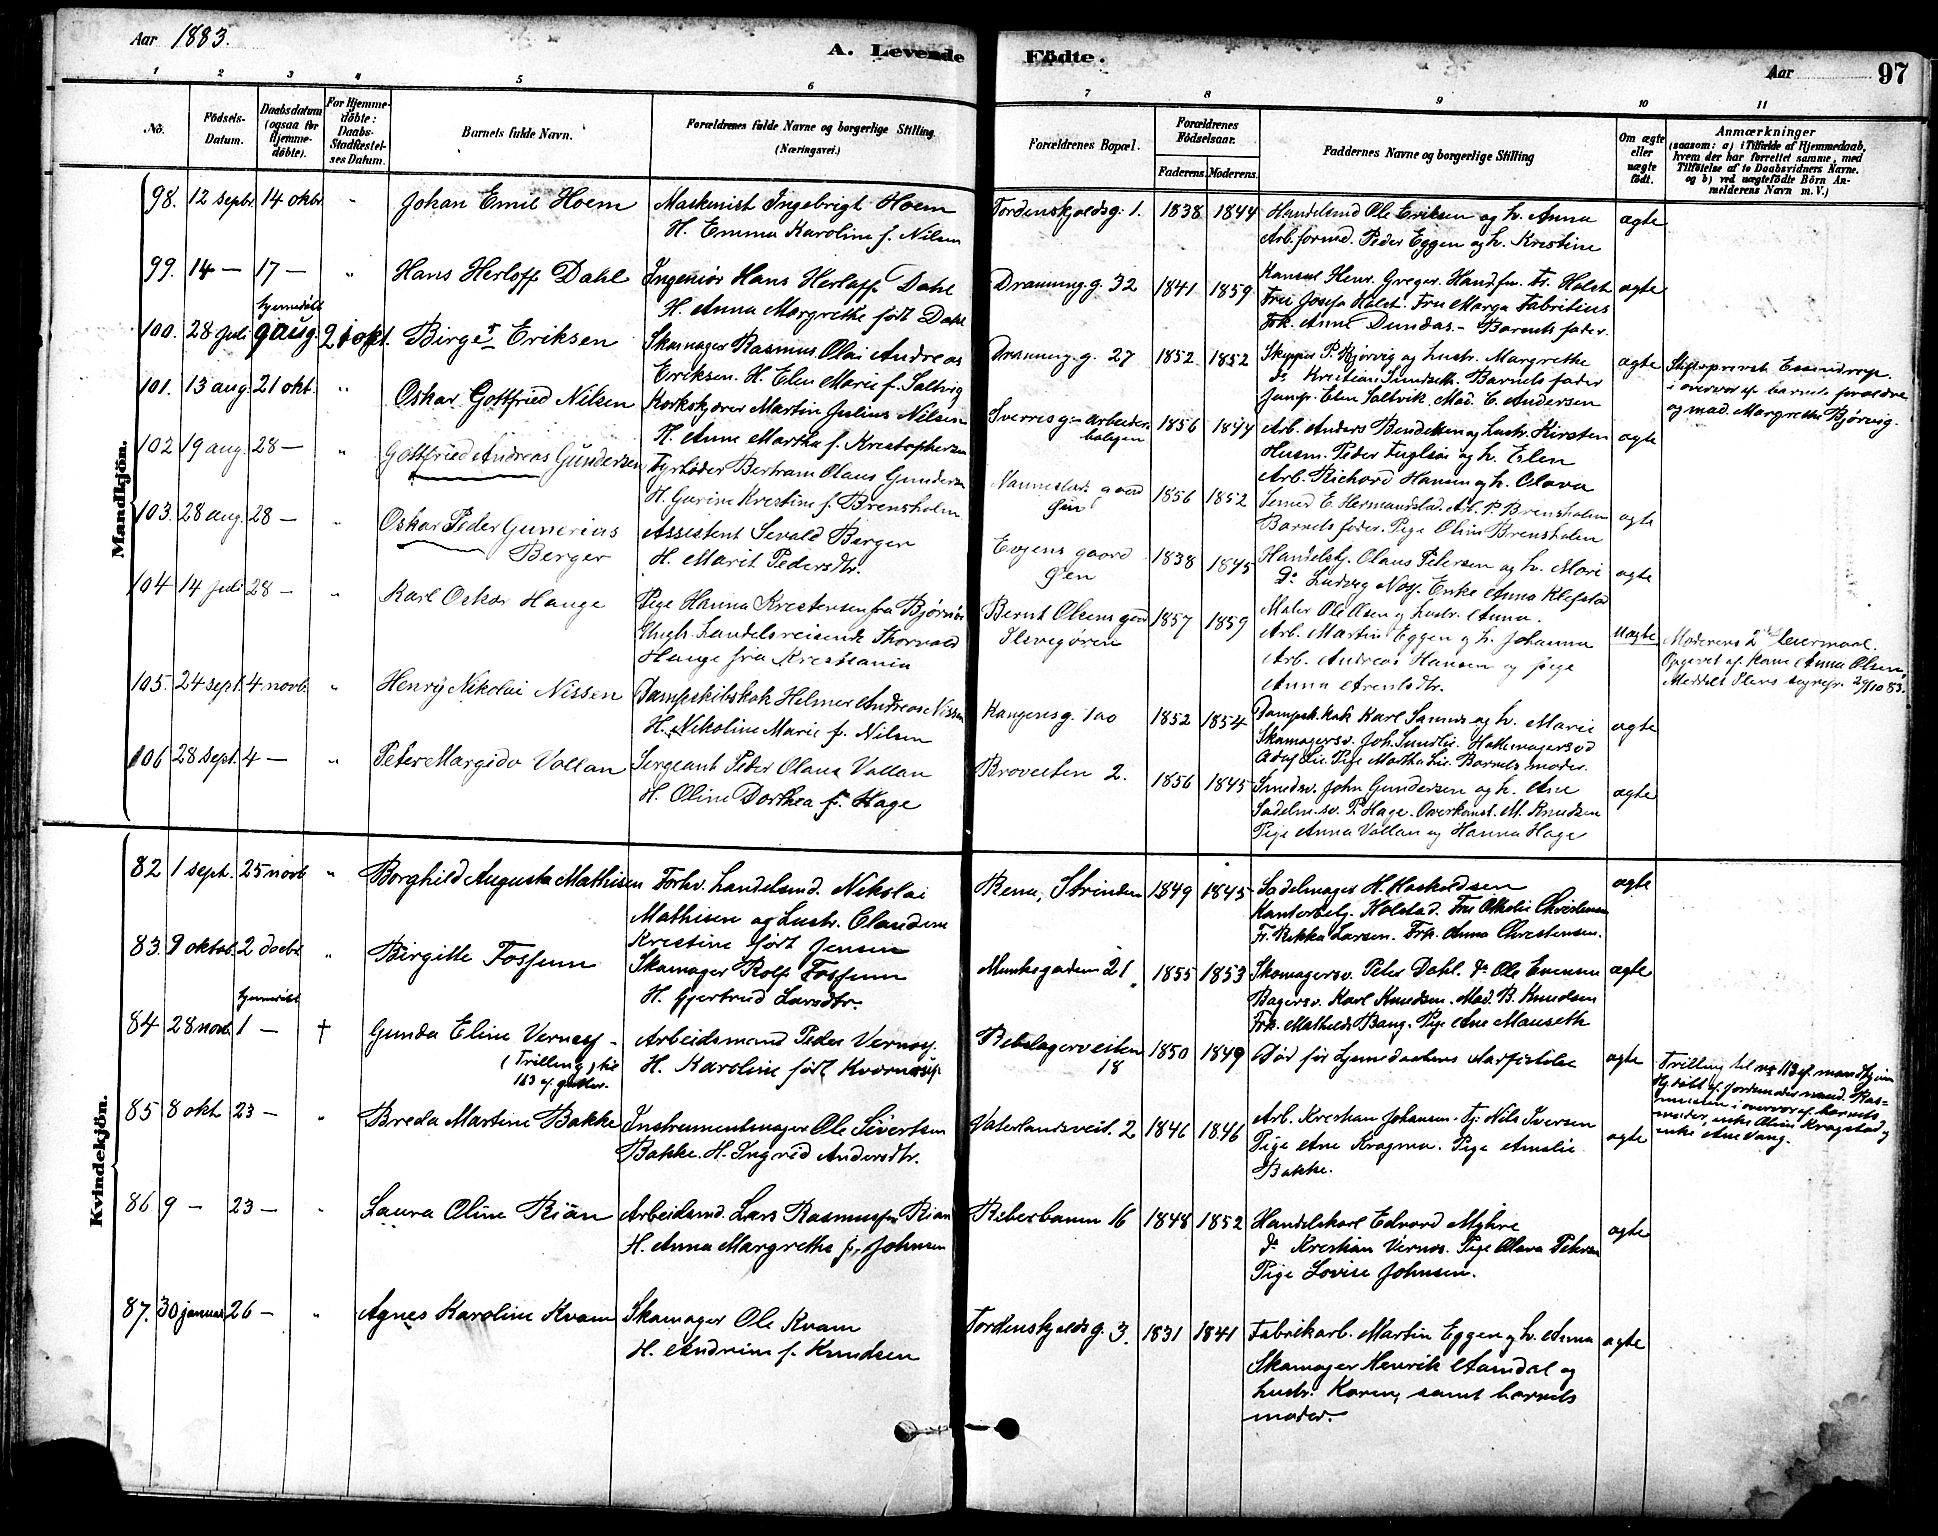 Aar 1883.
A. Levende Födte.
Aar
97
1 2 3 4 5 6 7 8 9 10 11
No.
Födsels-Datum.
Daabsdatum (ogsaa for Hjemme-döbte).
For Hjemme-döbte: Daabs-Stadfæstel-ses Datum.
Barnets fulde Navn.
Forældrenes fulde Navne og borgerlige Stilling. (Næringsvei.)
Forældrenes Bopæl.
Forældrenes Födselsaar.
Faderens. Moderens.
Faddernes Navne og borgerlige Stilling
Om ægte eller uægte født.
Anmærkninger
(saasom: a) i Tilfælde af Hjemmedaab,
hvem der har forrettet samme, med
Tilföielse af to Daabsvidners Navne.
og b) ved uægtefödte Börn An-
melderens Navn m. V.)
Mandkjön.
98. 12 septr 14 oktbr " Johan Emil Hoem Maskinist Ingebrigt Hoem Tordenskjoldsg. 1. 1838 1844 Handelsmd Ole Eriksen og h. Anna ægte
H. Emma Karoline f. Nilsen Arb.formd. Peder Eggen og h. Kristine
99. 14 — 17 — " Hans Herloff Dahl Ingeniør Hans Herloff Dahl Dronning.g. 32 1841 1859 Konsul Henr. Greger. Handfm. Fr. Holst ægte
H. Anna Margrethe født Dahl Fru Josefa Holst. Fru Marga Fabritius
Frk. Anne Dundas - Barnets fader.
hjemmedöbt
100. 28 juli 9 aug. 21 okt. Birger Eriksen Skomager Rasmus Olai Andreas Dronning.g. 27 1852 1852 Skipper P. Bjørvig og hustr. Margrethe ægte Stiftsprovst Essendrop
Eriksen. H. Elen Marie f. Saltvig do Kristian Sundseth. Barnets fader i overvær af barnets forældre
Jomf. Elen Saltvik. Mad. E. Andersen og mad. Margrethe Bjørvig.
101. 13 aug. 21 okt. " Oskar Gottfried Nilsen Korkskjærer Martin Julius Nilsen Sverresg. Arbeider boligen 1856 1844 Arb. Anders Bendiksen og hustr. Kirsten ægte
H. Anne Martha f. Kristophersen Husm. Peder Fuglsø og h. Elen
Arb. Richard Hansen og h. Olava
102 19 aug. 28 — " Gottfried Andreas Gundersen Fyrbøder Bertram Olaus Gundersen 1856 1852 ægte
H. Gurine Kristine f. Brensholm Barnets fader. Pige Oline Brensholm
103. 28 aug. 28 — " Oskar Peder Gunerius Berger Assistent Sevald Berger Evjens gaard 1838 1845 Handelsbtj. Olaus Petersen og h. Mari ægte
H. Marit Pedersdtr. do Ludvig Noss. Enke Anna Klefstad
104 14 juli 28 — " Karl Oskar Hauge Pige Hanna Kristensen fra Bjørnör Bernt Olsens gaard Ilsvigøren 1857 1859 Maler Ole Olsen og hustr. Anna. uægte Moderens 2det leiermaal.
Ungk. Handelsreisende Thorvald Hauge fra Kristiania Arb. Martin Eggen og h. Johanna Opgivet af Kone Anna Olsen,
Arb. Andreas Hansen og pige Anna Arentsdtr. Meddelt Ilens sogrepr. 29/10 83.
105. 24 sept. 4 novb. " Henry Nikolai Nissen Dampskibskok Helmer Andreas Nissen Kongensg. 100 1852 1854 Dampsk.kok Karl Samns og h. Marie ægte
H. Nikoline Marie f. Nilsen Skomagersv. Joh. Sundlie. Hattemagersvd
Adolf Lie. Pige Martha Lie. Barnets moder.
106 28 sept. 4 — " Peter Margido Vollan Sergeant Peder Olaus Vollan Broveiten 2. 1856 1845 Smedsv. John Gundersen og h. Ane ægte
H. Oline Dorthea f. Hage Sadelm.sv. P. Hage. Overkonst. M. Knudsen
Pige Anna Vollan og Hanna Hage
Kvindekjön.
82 1 sept. 25 novb " Borghild Augusta Mathisen Forhv. Landelsmd. Nikolai Rena, Strinden 1849 1845 Sadelmager H. Haskoldsen ægte
Mathisen og hustr. Claudine Kontorbetj. Kolstad. Fru Othelie Christensen
Kristine født Jensen Fr. Rikka Larsen. Frk. Anna Christensen.
83. 9 oktob. 2 decbr " Birgitte Fossum Skomager Rolf Fossum Munkegaden 21. 1855 1853 Skomagersv. Peter Dahl. do Ole Evensen ægte
H. Gjertrud Larsdtr. Bagersv. Karl Knudsen. Mad. B. Knudsen
Frk. Mathilde Bang. Pige Ane Mauseth
hjemmedöbt
84 28 novb. 1 — † Gunda Eline Verness - Arbeidsmand Peder Verness. Rebslagerveiten 18 1850 1849 Død før hjemmedaabens stadfæstelse ægte Trilling til no 113 af mandkjøn
(Trilling) til 113 af gutter. H. Karoline født Kvernsip Hj.døbt af jordmoder mad. Ras-
mussen i overvær af barnets
moder, enke Oline Kragstad og
enke Ane Vang.
85 8 okt. 23 — " Breda Martine Bakke Instrumentmager Ole Sivertsen Vaterlandsveit. 2 1846 1846 Arb. Kristian Johansen. Tj. Nils Iversen ægte
Bakke. H. Ingrid Andersdtr. Pige Ane Kragmo. Pige Amalie
Bakke.
86 9 — 23 — " Laura Oline Rian Arbeidsmd. Lars Rasmussen Rian Reberbanen 16 1848 1852 Handelskarl Edvard Myhre ægte
H. Anna Margrethe f. Johnsen do Kristian Vernes. Pige Olava Petersen
Pige Lovise Johnsen.
87. 30 januar 26 — " Agnes Karoline Kvam Skomager Ole Kvam Tordenskjoldsg. 3. 1831 1841 Fabrikarb. Martin Eggen og h. Anna ægte
H. Andrine f. Knudsen Skomager Henrik Aamdal og
hustr. Karen, samt barnets
moder.